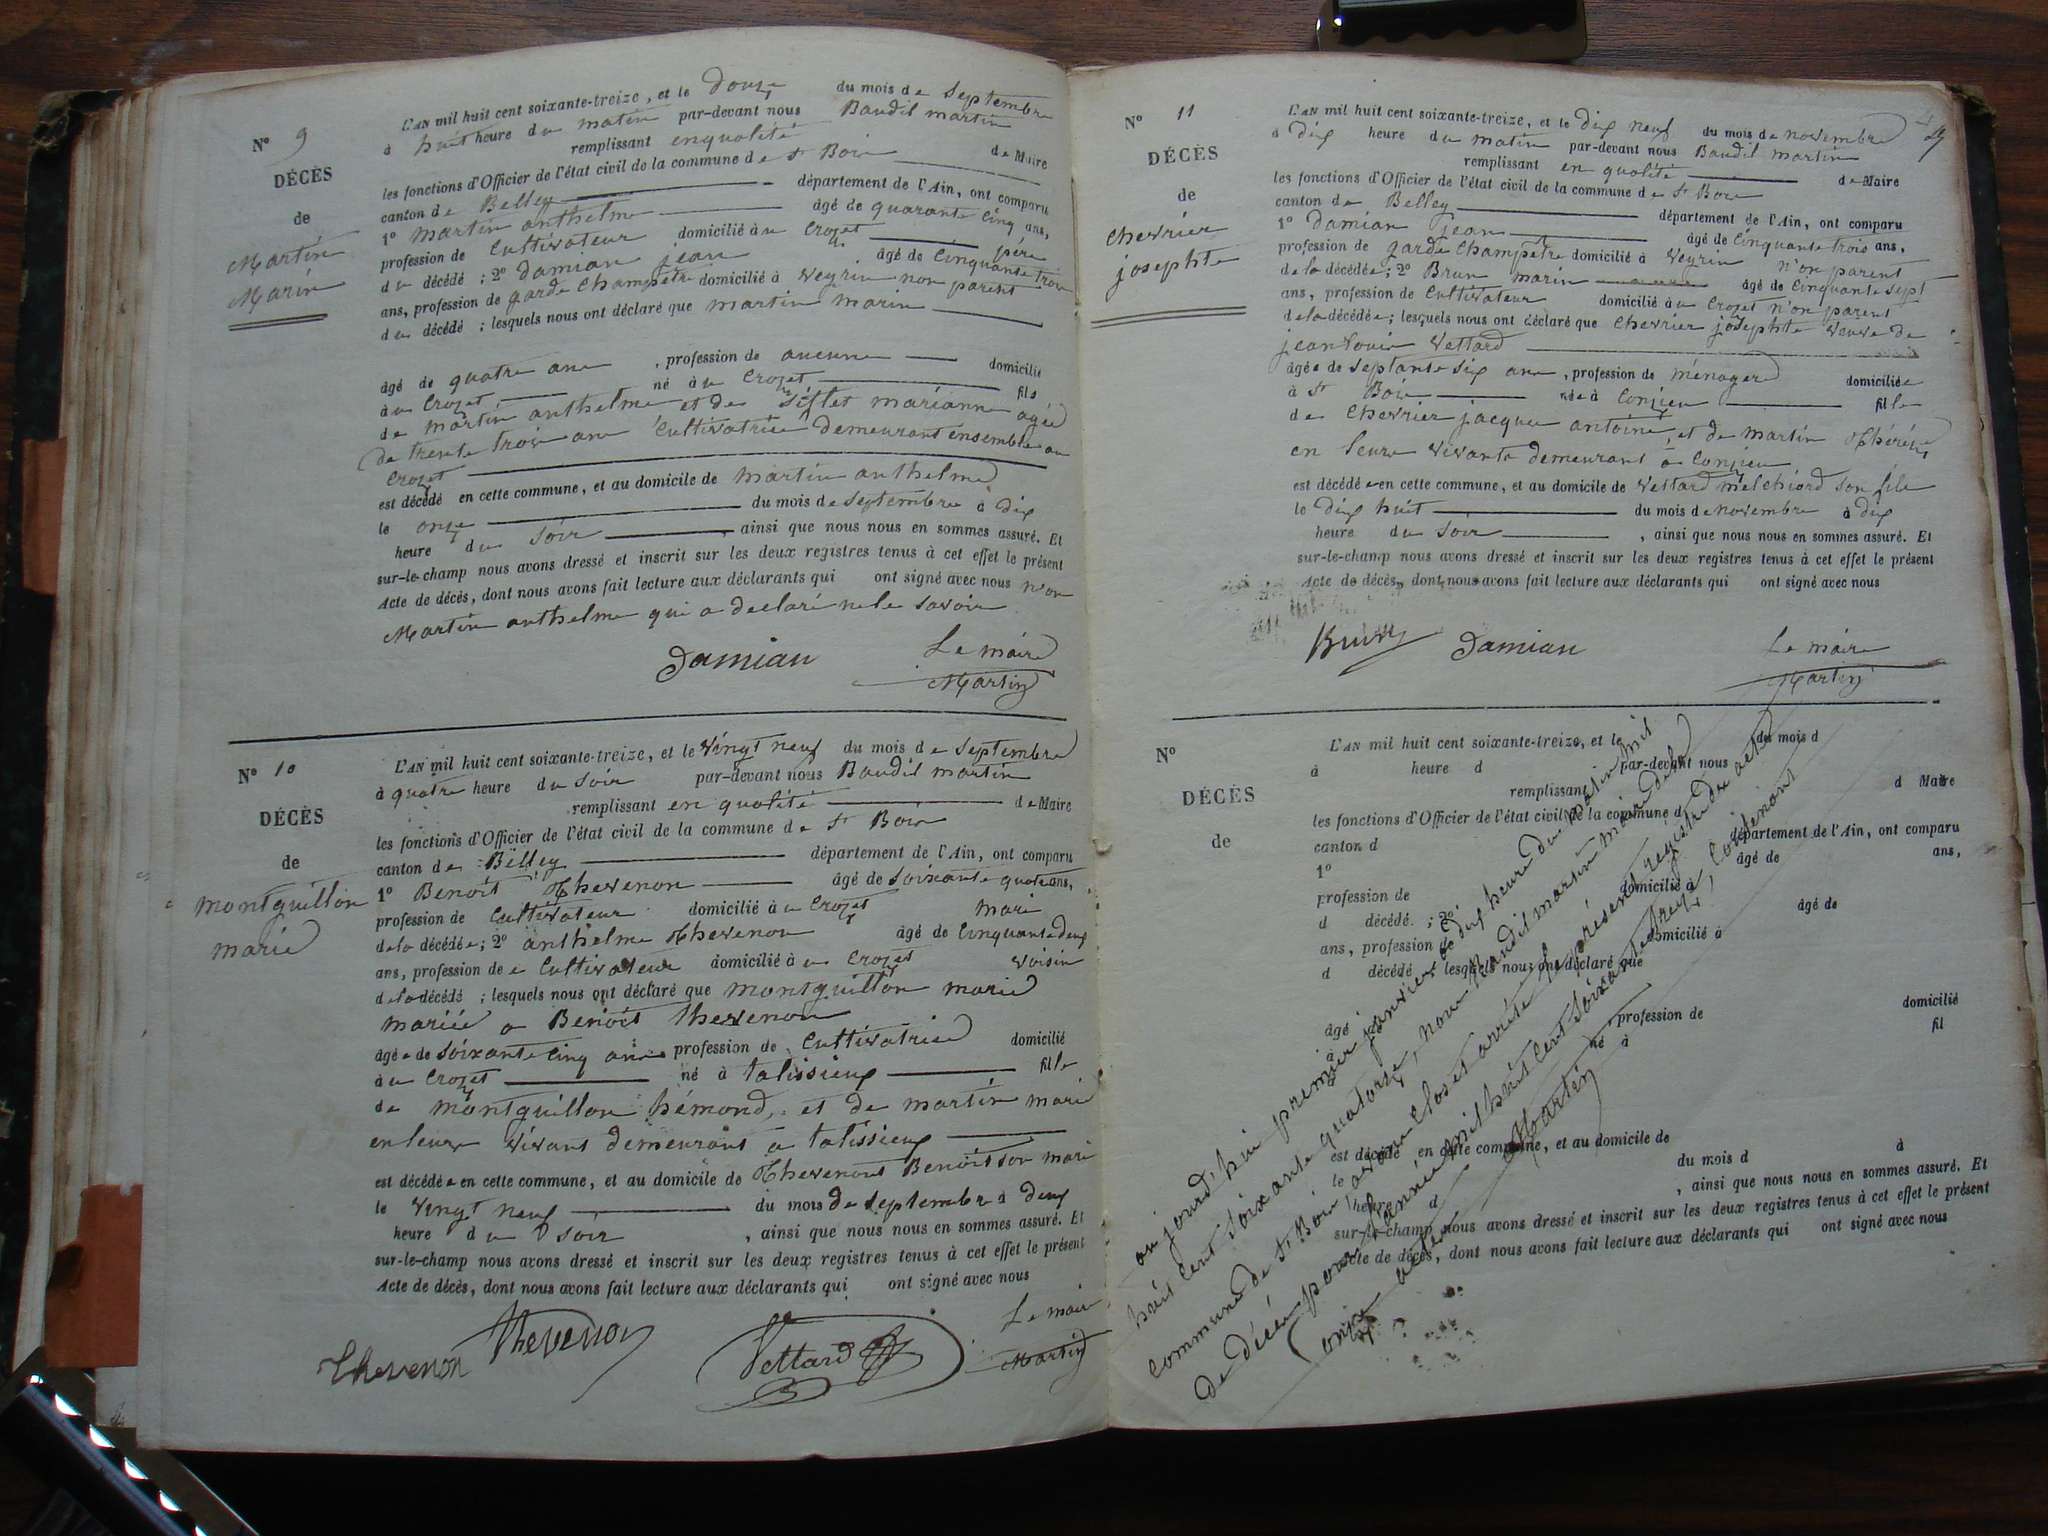 N° 9
DÉCÈS
de
Martin
Marin
L'AN mil huit cent soixante-treize, et le douze du mois de septembre
à huit heure du matin par-devant nous Baudil martin
remplissant enqualité de Maire
les fonctions d'Officier de l'état civil de la commune de St Bois
canton de Belley département de l'Ain, ont comparu
1° martin anthelme âgé de quarante cinq ans,
profession de Cultivateur domicilié à u Crozet père
du décédé ; 2° damian jean âgé de Cinquante trois
ans, profession de garde Champetre domicilié à Veyrin non parent
du décédé ; lesquels nous ont déclaré que martin marin
âgé de quatre ans , profession de aucune domicilié
à u Crozet né à u Crozet fils
de martin anthelme et de Sifflet marianne agée
de trente trois ans Cultivatrice demeurant ensemble au
Crozet
est décédé en cette commune, et au domicile de martin anthelme
le onze du mois de septembre à dix
heure du soir ainsi que nous nous en sommes assuré. Et
sur-le-champ nous avons dressé et inscrit sur les deux registres tenus à cet effet le présent
Acte de décès, dont nous avons fait lecture aux déclarants qui ont signé avec nous n'on
Martin anthelme qui a declaré ne le savoir
Damian
Le maire
Martin
N° 10
DÉCÈS
de
montquillon
marie
L'AN mil huit cent soixante-treize, et le vingt neuf du mois de septembre
à quatre heure du soir par-devant nous Baudil martin
remplissant en qualité de Maire
les fonctions d'Officier de l'état civil de la commune de St Bois
canton de Belley département de l'Ain, ont comparu
1° Benoit Thevenon âgé de soixante quatre ans,
profession de Cultivateur domicilié à u Crozet mari
de la décédée ; 2° anthelme Thevenon âgé de Cinquante deux
ans, profession de Cultivateur domicilié à u Crozet voisin
de la décédé ; lesquels nous ont déclaré que montquillon marie
mariée a Benoit thevenon
âgée de soixante cinq ans profession de Cultivatrice domicilié
à u Crozet né à talissieux fille
de montquillon hémond, et de martin marie
en leurs vivans demeurans a talissieux
est décédée en cette commune, et au domicile de Thevenont Benoit son mari
le vingt neuf du mois de septembre à deux
heure du soir , ainsi que nous nous en sommes assuré. Et
sur-le-champ nous avons dressé et inscrit sur les deux registres tenus à cet effet le présent
Acte de décès, dont nous avons fait lecture aux déclarants qui ont signé avec nous
Thevenon
Thevenon
Vettard
Le maire
Martin
N° 11
DÉCÈS
de
Chevrier
josephte
L'AN mil huit cent soixante-treize, et le dix neuf du mois de novembre
à dix heure du matin par-devant nous Baudil martin
remplissant en qualité de Maire
les fonctions d'Officier de l'état civil de la commune de St Bois
canton de Belley département de l'Ain, ont comparu
1° damian jean âgé de Cinquante trois ans,
profession de garde Champetre domicilié à Veyrin n'on parent
de la décédée ; 2° Brun marin âgé de Cinquante sept
ans, profession de Cultivateur domicilié à u Crozet n'on parent
de la décédée ; lesquels nous ont déclaré que Chevrier josephte veuve de
jean louis Vettard
âgée de septante six ans , profession de ménagere domiciliée
à St Bois née à Conzieu fille
de Chevrier jacque antoine, et de martin Thérèse
en leurs vivants demeurant à Conzieu
est décédée en cette commune, et au domicile de Vettard melchiord son fils
le dix huit du mois de novembre à dix
heure du soir , ainsi que nous nous en sommes assuré. Et
sur-le-champ nous avons dressé et inscrit sur les deux registres tenus à cet effet le présent
Acte de décès, dont nous avons fait lecture aux déclarants qui ont signé avec nous
Brun Damian
Le maire
Martin
N°
DÉCÈS
de
L'AN mil huit cent soixante-treize, et le du mois d
à heure d par-devant nous
remplissant d Maire
les fonctions d'Officier de l'état civil de la commune d
canton d département de l'Ain, ont comparu
1° âgé de ans,
profession de domicilié à
d décédé ; 2° âgé de
ans, profession de domicilié à
d décédé ; lesquels nous ont déclaré que
âgé profession de domicilié
à né à fil
est décédé en cette commune, et au domicile de
le du mois d à
heure d , ainsi que nous nous en sommes assuré. Et
sur-le-champ nous avons dressé et inscrit sur les deux registres tenus à cet effet le présent
Acte de décès, dont nous avons fait lecture aux déclarants qui ont signé avec nous
aujourd'hui premier janvier a dix heure du matin mil
huit cent soixante quatorze, nous Baudil martin maire de la
commune de St Bois avons Clos et arrêté le présent registre du acte
de décès pour l'année mil huit cent soixante treize, Contenant
onze actes
Martin